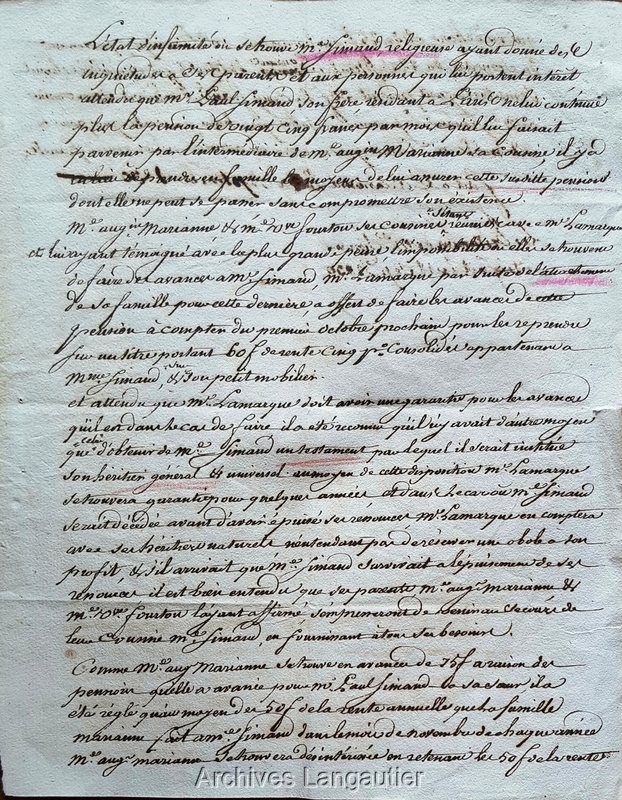 L'état d'infirmité où se trouve Mme Simand, religieuse ayant donné des
inquiétudes à ses parents et aux personnes qui lui portent intérêt
attendu que Mr Paul Simand son frère résidant à Paris ne lui continue
plus la pension de vingt cinq francs par mois qu'il lui faisait
parvenir par l'intermédiaire de Me augin Marianne sa cousine il y a
moyen de lui assurer cette susdite pension
dont elle ne peut se passer sans compromettre son existence
Me augin Marianne & me vve fourton ses cousines s'étant réunies avec Mr Lamarque
et lui ayant témoigné avec la plus grande peine l'impossibilité où elles se trouvent
de faire des avances à me Simand, Mr Lamarque par suite de l'attachement
de sa famille pour cette dernière, a offert de faire les avances de cette
pension à compter du premier octobre prochain pour les reprendre
sur un titre portant 60f de rente Cinq p% Consolidés appartenant à
Mme Simand, & sur son petit mobilier
et attendu que Mr Lamarque doit avoir une garantie pour les avances
qu'il est dans le cas de faire il a été reconnu qu'il n'y avait d'autre moyen
que celui d'obtenir de Me Simand un testament par lequel il serait institué
son héritier général & universel. au moyen de cette disposition Mr Lamarque
se trouvera garanti pour quelques années et dans le cas où me Simand
serait décédée avant d'avoir épuisé ses ressources Mr Lamarque en comptera
avec ses héritiers naturels n'entendant pas de réserver une obole à son
profit, & s'il arrivait que me Simand survivait à l'épuisement de ses
ressources il est bien entendu que ses parents Me aug. marianne &
Me vve fourton l'ayant affirmé s'empresseront de venir au secours de
leur Cousine Me Simand, en fournissant à tous ses besoins.
Comme Me aug. Marianne se trouve en avance de 75f à raison des
pensions qu'elle a avancé pour Mr Paul Simand à sa sœur il a
été réglé qu'au moyen des 50f de la rente annuelle que la famille
marianne fait à me Simand dans le mois de novembre de chaque année
Me aug. marianne se trouvera désintéressée en retenant les 50f de la rente
Archives Langautier